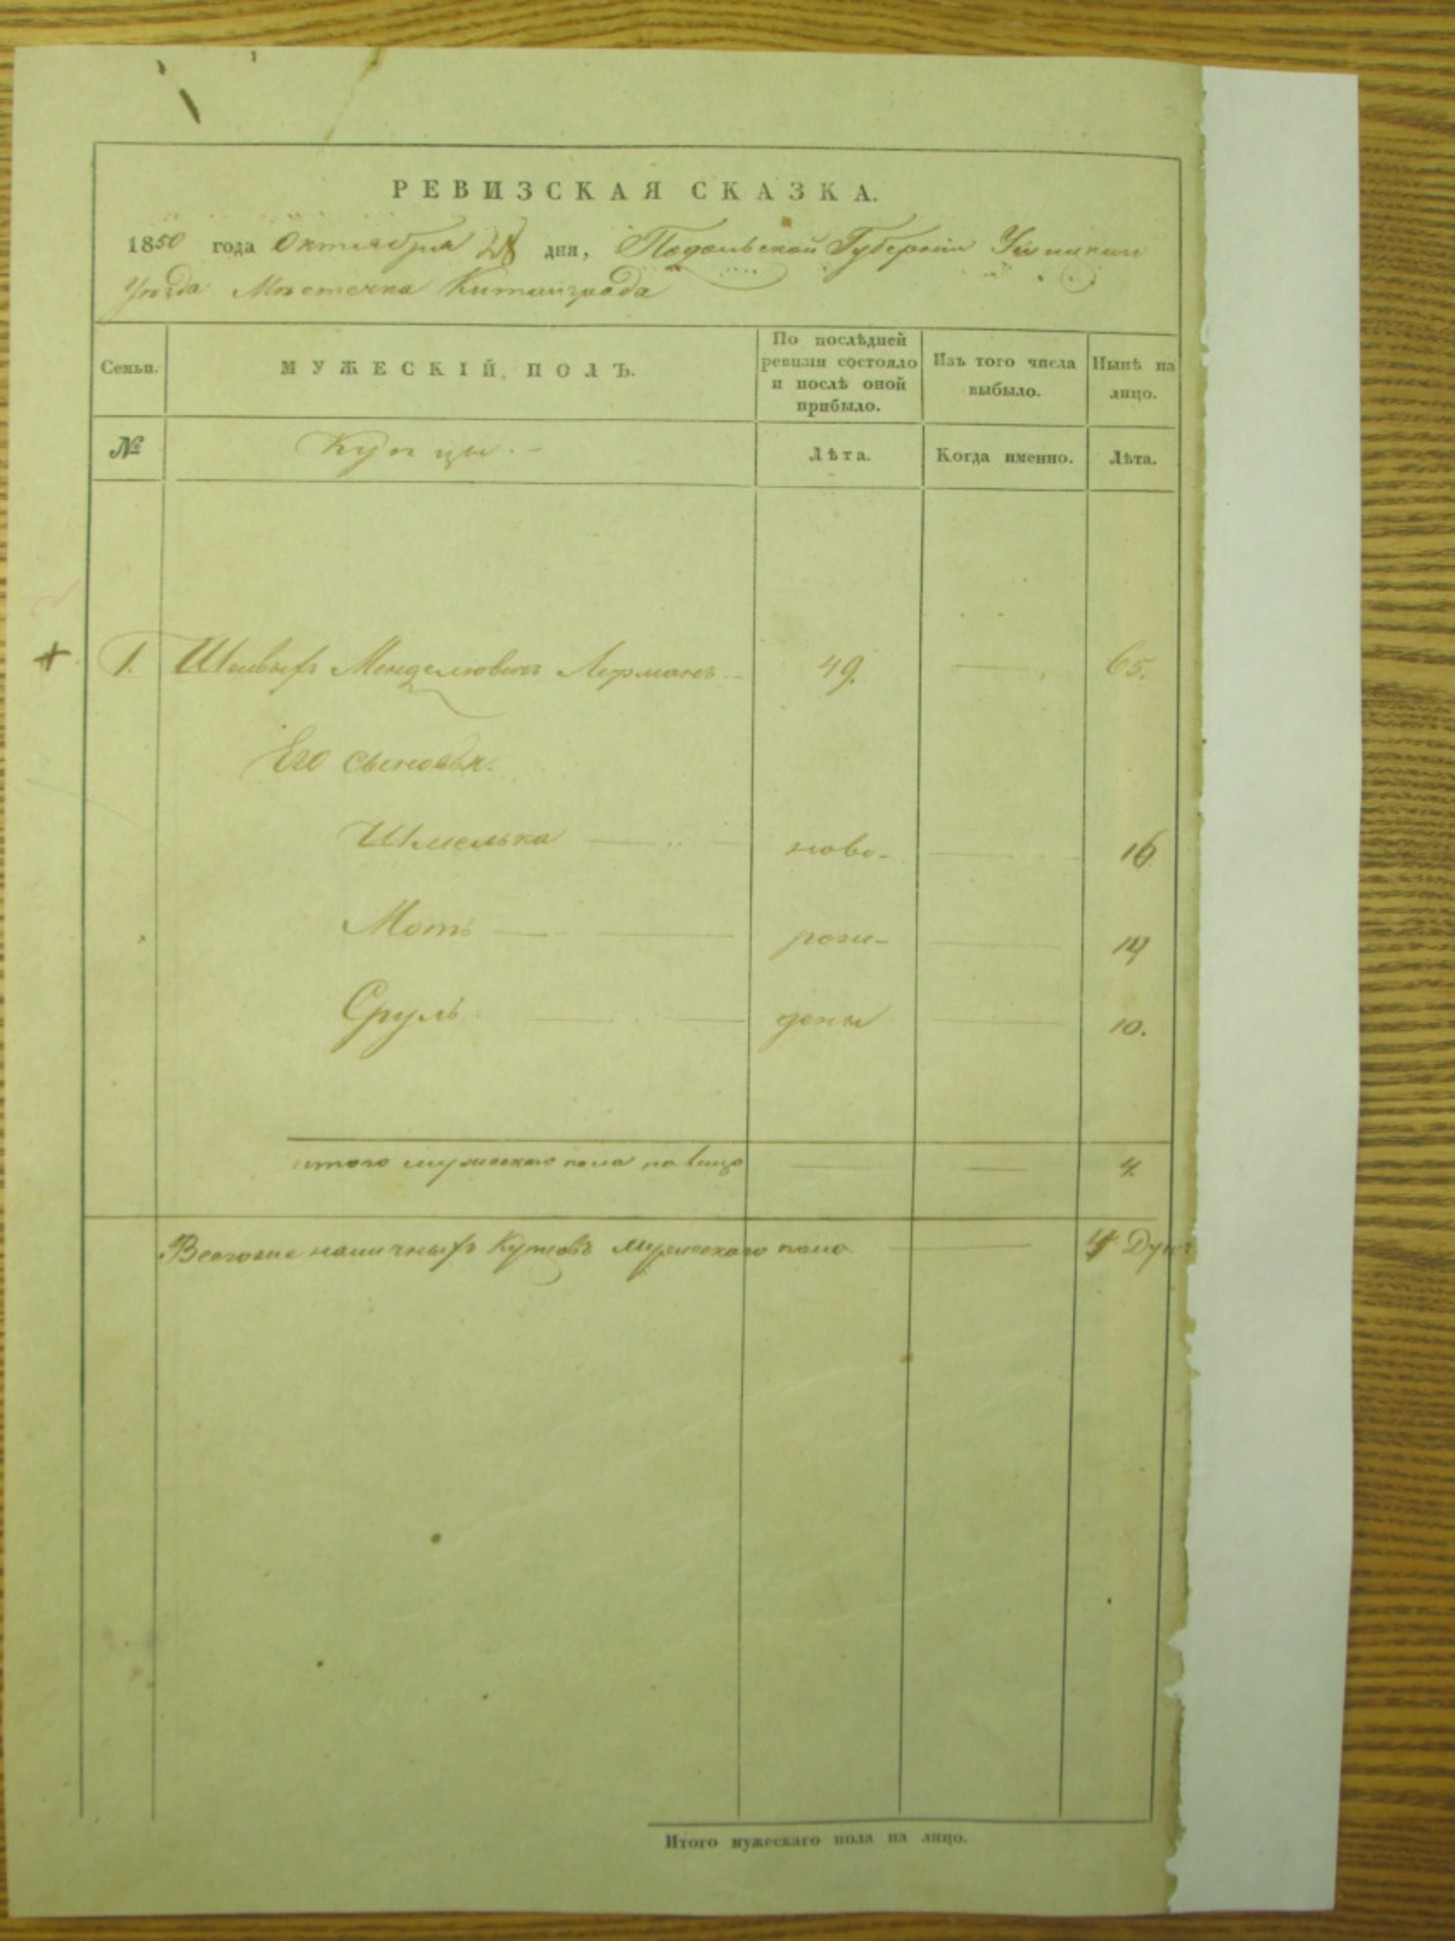 РЕВИЗСКАЯ СКАЗКА.
1850 года Октября 28 дня, Подольской Губернiи Ушицкаго
Уѣзда Мѣстечка Китайгрода
Семьи. МУЖЕСКIЙ ПОЛЪ. По послѣдней ревизiи состояло и послѣ оной прибыло. Изъ того числа выбыло. Нынѣ на лицо.
№ Купцы. - Лѣта. Когда именно. Лѣта.
1. Менделiовичъ Лерманъ 49. — 65.
Его сыновья.
Шмелька — ново- — 16
Моть — рож- — 14
Сруль — дены — 10.
итого мужескаго пола на лицо — — 4
Всего же наличныхъ Купцовъ мужескаго пола — 4 Души
Итого мужескаго пола на лицо.